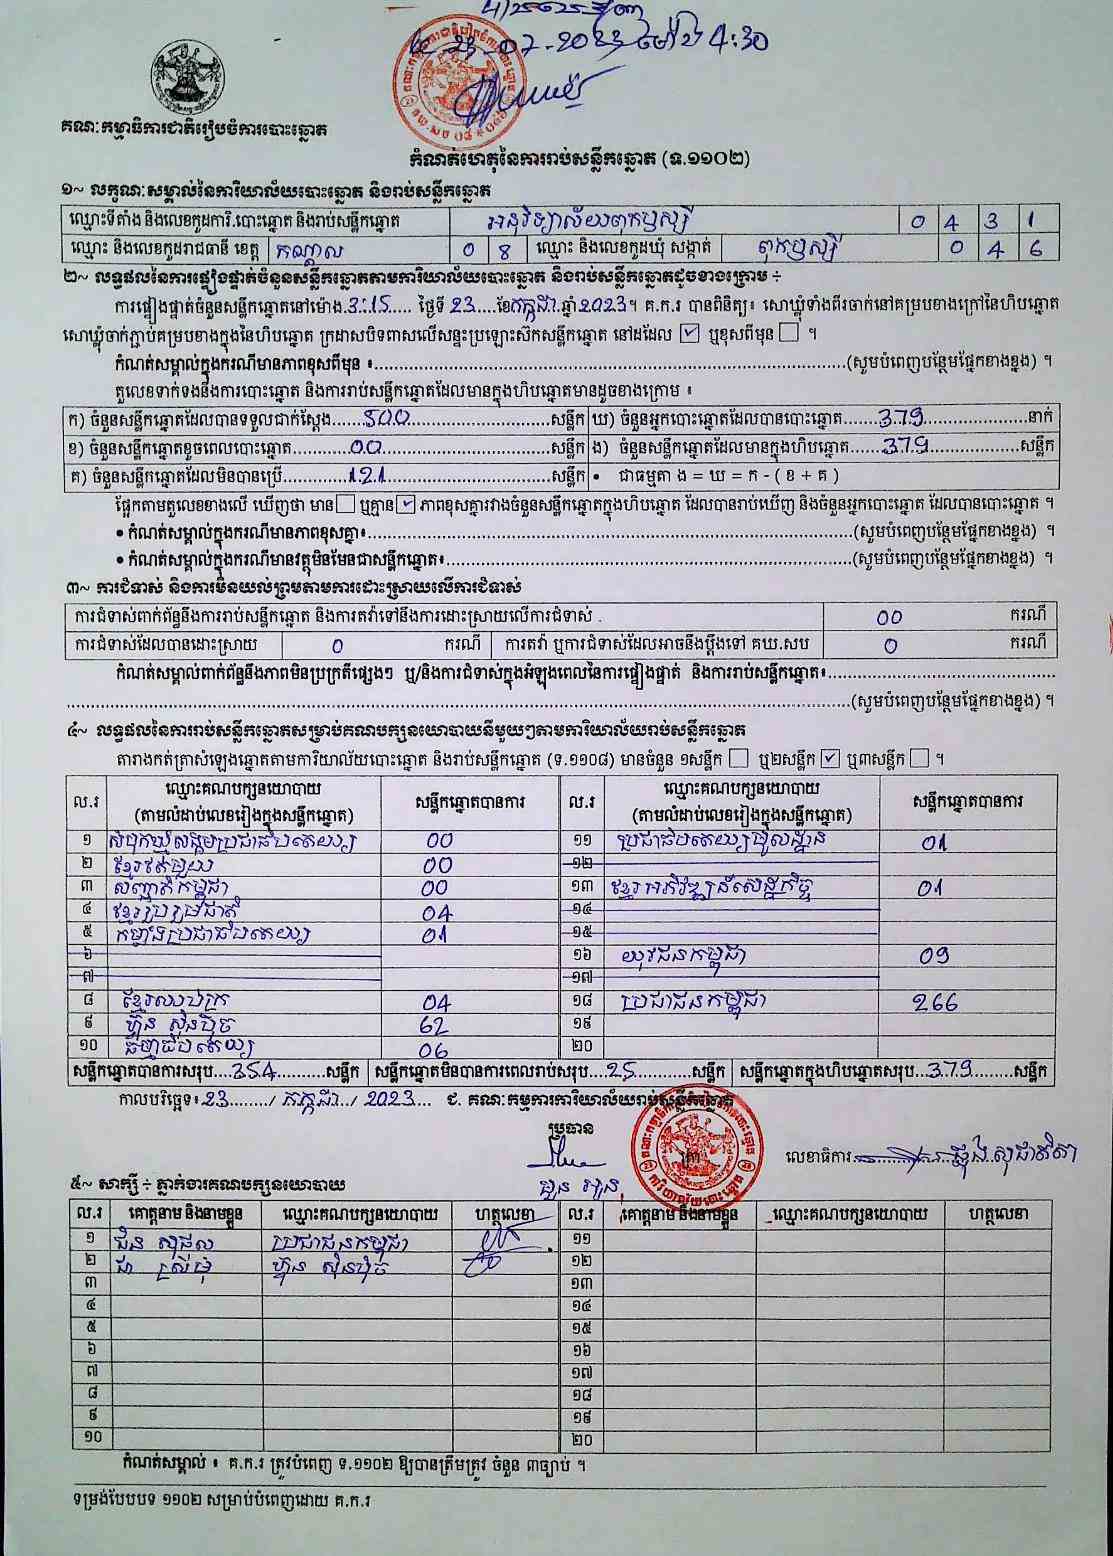 23-07-2023 ម៉ោង 4:30
គណៈកម្មាធិការជាតិរៀបចំការបោះឆ្នោត
កំណត់ហេតុនៃការរាប់សន្លឹកឆ្នោត (ទ.១១០២)
១~ លក្ខណៈសម្គាល់នៃការិយាល័យបោះឆ្នោត និងរាប់សន្លឹកឆ្នោត
ឈ្មោះទីតាំង និងលេខកូដការិ.បោះឆ្នោត និងរាប់សន្លឹកឆ្នោត អនុវិទ្យាល័យពុកឫស្សី 0 4 3 1
ឈ្មោះ និងលេខកូដរាជធានី ខេត្ត កណ្តាល 0 8 ឈ្មោះ និងលេខកូដឃុំ សង្កាត់ ពុកឫស្សី 0 4 6
២~ លទ្ធផលនៃការផ្ទៀងផ្ទាត់ចំនួនសន្លឹកឆ្នោតតាមការិយាល័យបោះឆ្នោត និងរាប់សន្លឹកឆ្នោតដូចខាងក្រោម ÷
ការផ្ទៀងផ្ទាត់ចំនួនសន្លឹកឆ្នោតនៅម៉ោង 3:15 ថ្ងៃទី 23 ខែ កក្កដា ឆ្នាំ 2023។ គ.ក.រ បានពិនិត្យ៖ សោឃ្លុំទាំងពីរចាក់នៅគម្របខាងក្រៅនៃហិបឆ្នោត
សោឃ្លុំចាក់ភ្ជាប់គម្របខាងក្នុងនៃហិបឆ្នោត ក្រដាសបិទពាសលើសន្ទះប្រឡោះស៊កសន្លឹកឆ្នោត នៅដដែល ☑ ឬខុសពីមុន ☐ ។
កំណត់សម្គាល់ក្នុងករណីមានភាពខុសពីមុន ៖ (សូមបំពេញបន្ថែមផ្នែកខាងខ្នង) ។
តួលេខទាក់ទងនឹងការបោះឆ្នោត និងការរាប់សន្លឹកឆ្នោតដែលមានក្នុងហិបឆ្នោតមានដូចខាងក្រោម ៖
ក) ចំនួនសន្លឹកឆ្នោតដែលបានទទួលជាក់ស្តែង 500 សន្លឹក ឃ) ចំនួនអ្នកបោះឆ្នោតដែលបានបោះឆ្នោត 379 នាក់
ខ) ចំនួនសន្លឹកឆ្នោតខូចពេលបោះឆ្នោត 00 សន្លឹក ង) ចំនួនសន្លឹកឆ្នោតដែលមានក្នុងហិបឆ្នោត 379 សន្លឹក
គ) ចំនួនសន្លឹកឆ្នោតដែលមិនបានប្រើ 121 សន្លឹក • ជាធម្មតា ង = ឃ = ក - ( ខ + គ )
ផ្អែកតាមតួលេខខាងលើ ឃើញថា មាន ☐ ឬគ្មាន ☑ ភាពខុសគ្នារវាងចំនួនសន្លឹកឆ្នោតក្នុងហិបឆ្នោត ដែលបានរាប់ឃើញ និងចំនួនអ្នកបោះឆ្នោត ដែលបានបោះឆ្នោត ។
• កំណត់សម្គាល់ក្នុងករណីមានភាពខុសគ្នា៖ (សូមបំពេញបន្ថែមផ្នែកខាងខ្នង) ។
• កំណត់សម្គាល់ក្នុងករណីមានវត្ថុមិនមែនជាសន្លឹកឆ្នោត៖ (សូមបំពេញបន្ថែមផ្នែកខាងខ្នង) ។
៣~ ការជំទាស់ និងការមិនយល់ព្រមតាមការដោះស្រាយលើការជំទាស់
ការជំទាស់ពាក់ព័ន្ធនឹងការរាប់សន្លឹកឆ្នោត និងការតវ៉ាទៅនឹងការដោះស្រាយលើការជំទាស់ . 00 ករណី
ការជំទាស់ដែលបានដោះស្រាយ 0 ករណី ការតវ៉ា ឬការជំទាស់ដែលអាចនឹងប្តឹងទៅ គឃ.សប 0 ករណី
កំណត់សម្គាល់ពាក់ព័ន្ធនឹងភាពមិនប្រក្រតីផ្សេងៗ ឬ/និងការជំទាស់ក្នុងអំឡុងពេលនៃការផ្ទៀងផ្ទាត់ និងការរាប់សន្លឹកឆ្នោត៖
(សូមបំពេញបន្ថែមផ្នែកខាងខ្នង) ។
៤~ លទ្ធផលនៃការរាប់សន្លឹកឆ្នោតសម្រាប់គណបក្សនយោបាយនីមួយៗតាមការិយាល័យរាប់សន្លឹកឆ្នោត
តារាងកត់ត្រាសំឡេងឆ្នោតតាមការិយាល័យបោះឆ្នោត និងរាប់សន្លឹកឆ្នោត (ទ.១១០៨) មានចំនួន ១សន្លឹក ☐ ឬ២សន្លឹក ☑ ឬ៣សន្លឹក ☐ ។
ល.រ ឈ្មោះគណបក្សនយោបាយ (តាមលំដាប់លេខរៀងក្នុងសន្លឹកឆ្នោត) សន្លឹកឆ្នោតបានការ ល.រ ឈ្មោះគណបក្សនយោបាយ (តាមលំដាប់លេខរៀងក្នុងសន្លឹកឆ្នោត) សន្លឹកឆ្នោតបានការ
១ សំបុកឃ្មុំសង្គមប្រជាធិបតេយ្យ 00 ១១ ប្រជាធិបតេយ្យមូលដ្ឋាន 01
២ ខ្មែរតែមួយ 00 ១២
៣ សញ្ជាតិកម្ពុជា 00 ១៣ ខ្មែរអភិវឌ្ឍន៍សេដ្ឋកិច្ច 01
៤ ខ្មែររួបរួមជាតិ 04 ១៤
៥ កម្លាំងប្រជាធិបតេយ្យ 01 ១៥
៦ ១៦ យុវជនកម្ពុជា 09
៧ ១៧
៨ ខ្មែរឈប់ក្រ 04 ១៨ ប្រជាជនកម្ពុជា 266
៩ ហ៊្វុន ស៊ិនប៉ិច 62 ១៩
១០ ធម្មាធិបតេយ្យ 06 ២០
សន្លឹកឆ្នោតបានការសរុប 354 សន្លឹក សន្លឹកឆ្នោតមិនបានការពេលរាប់សរុប 25 សន្លឹក សន្លឹកឆ្នោតក្នុងហិបឆ្នោតសរុប 379 សន្លឹក
កាលបរិច្ឆេទ៖ 23 / កក្កដា / 2023 ជ. គណៈកម្មការការិយាល័យរាប់សន្លឹកឆ្នោត
ប្រធាន
លេខាធិការ
៥~ សាក្សី ÷ ភ្នាក់ងារគណបក្សនយោបាយ
ល.រ គោត្តនាម និងនាមខ្លួន ឈ្មោះគណបក្សនយោបាយ ហត្ថលេខា ល.រ គោត្តនាម និងនាមខ្លួន ឈ្មោះគណបក្សនយោបាយ ហត្ថលេខា
១ ប្រជាជនកម្ពុជា ១១
២ ជា ស្រីមុំ ហ៊្វុន ស៊ិនប៉ិច ១២
៣ ១៣
៤ ១៤
៥ ១៥
៦ ១៦
៧ ១៧
៨ ១៨
៩ ១៩
១០ ២០
កំណត់សម្គាល់ ៖ គ.ក.រ ត្រូវបំពេញ ទ.១១០២ ឱ្យបានត្រឹមត្រូវ ចំនួន ៣ច្បាប់ ។
ទម្រង់បែបបទ ១១០២ សម្រាប់បំពេញដោយ គ.ក.រ